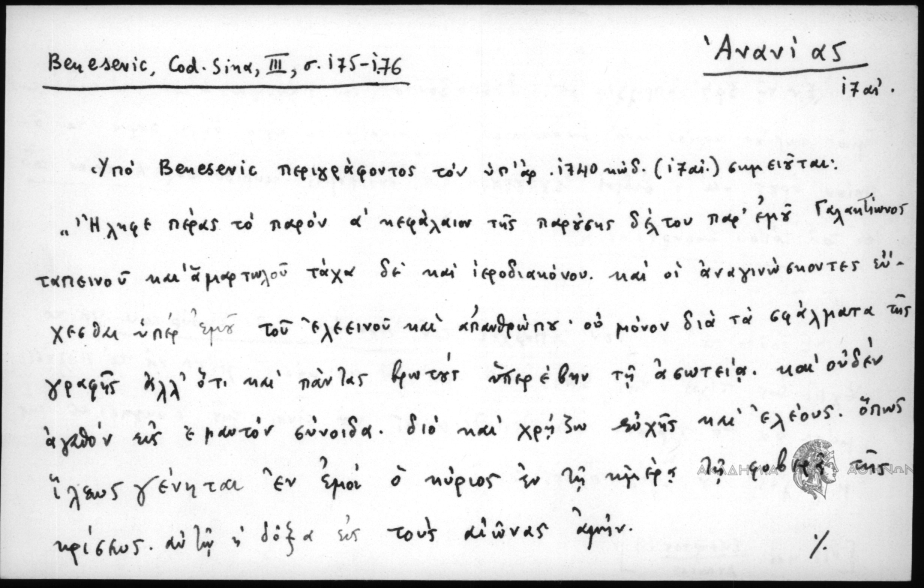 Benesevic, Cod. Sina, III, σ. 175-176
Ἀνανίας
17 αἰ.
Ὑπό Benesevic περιγράφοντος τόν ὑπ' ἀρ. 1740 κώδ. (17 αἰ.) σημειοῦται:
„Ἤληφε πέρας τό παρόν α' κεφάλαιον τῆς παρούσης δέλτου παρ' ἐμοῦ Γαλακτίωνος
ταπεινοῦ καί ἁμαρτωλοῦ τάχα δέ καί ἱεροδιακόνου. καί οἱ ἀναγινώσκοντες εὔ-
χεσθαι ὑπέρ ἐμοῦ τοῦ ἐλεεινοῦ καί ἀπανθρώπου· οὐ μόνον διά τά σφάλματα τῆς
γραφῆς ἀλλ' ὅτι καί πάντας βροτούς ὑπερέβην τῇ ἀσωτείᾳ. καί οὐδέν
ἀγαθόν εἰς ἐμαυτόν σύνοιδα. διό καί χρῄζω εὐχῆς καί ἐλέους. ὅπως
ἵλεως γένηται ἐν ἐμοί ὁ κύριος ἐν τῇ ἡμέρᾳ τῇ φοβερᾷ τῆς
κρίσεως. αὐτῷ ἡ δόξα εἰς τούς αἰῶνας ἀμήν.
%
ΑΚΑΔΗΜΙΑ ΑΘΗΝΩΝ